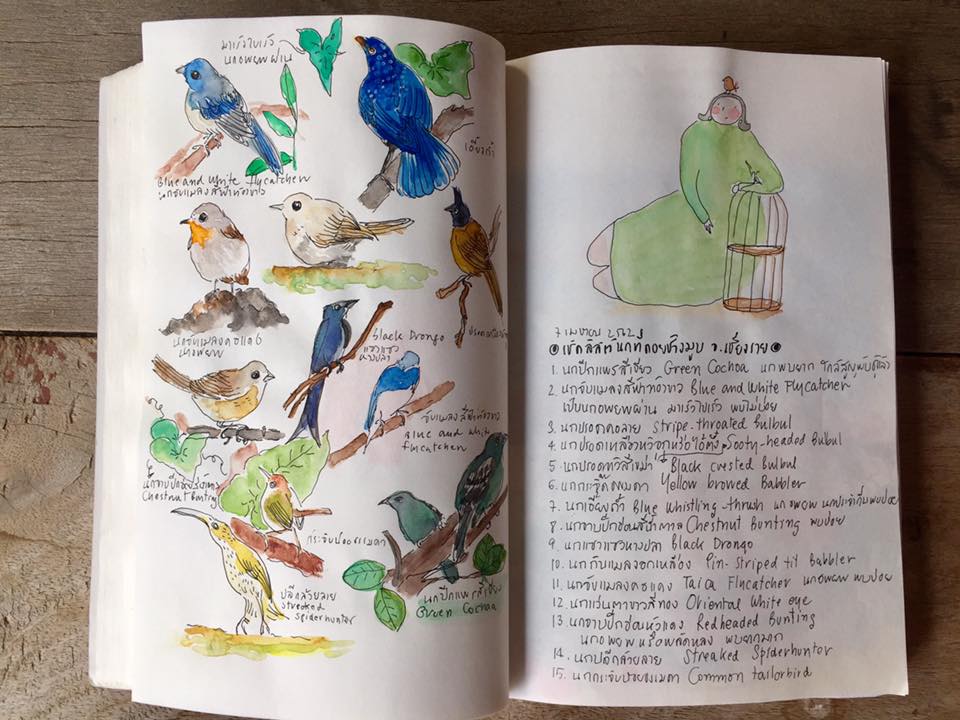 มาเร็วไปเร็ว
นกอพยพผ่าน
เอี้ยงถ้ำ
Blue and White flycatcher
นกจับแมลงสีฟ้าท้องขาว
นกจับแมลงคอแดง
นกอพยพ
black Drongo
แซงแซว
หางปลา
จับแมลงสีฟ้าท้องขาว
Blue and White
flycatcher
Chestnut Bunting
กระจิบธรรมดา
ปลีกล้วยลาย
streaked
spiderhunter
นกปีกแพรสีเขียว
Green Cochoa
7 เมษายน
เช็คลิสต์นกที่ดอยช้างมูบ จ.เชียงราย
1. นกปีกแพรสีเขียว Green Cochoa นกพบยาก ใกล้สูญพันธุ์แล้ว
2. นกจับแมลงสีฟ้าท้องขาว Blue and White Flycatcher
เป็นนกอพยพผ่าน มาเร็วไปเร็ว พบไม่บ่อย
3. นกปรอดคอลาย Stripe-throated Bulbul
4. นกปรอดเหลืองหัวจุก Sooty-headed Bulbul
5. Black crested Bulbul
6. Yellow browed Babbler
7. นกเอี้ยงถ้ำ Blue Whistling-thrush
8. Chestnut Bunting พบบ่อย
9. นกแซงแซวหางปลา Black Drongo
10. นกกินแมลงอกเหลือง Pin-Striped tit Babbler
11. นกจับแมลงคอแดง Taiga Flycatcher นกอพยพ พบบ่อย
12. นกแว่นตาขาวสีทอง Oriental White eye
13. Redheaded Bunting
นกอพยพหรือพลัดหลง พบยากมาก
14. นกปลีกล้วยลาย Streaked Spiderhunter
15. นกกระจิบธรรมดา Common tailorbird